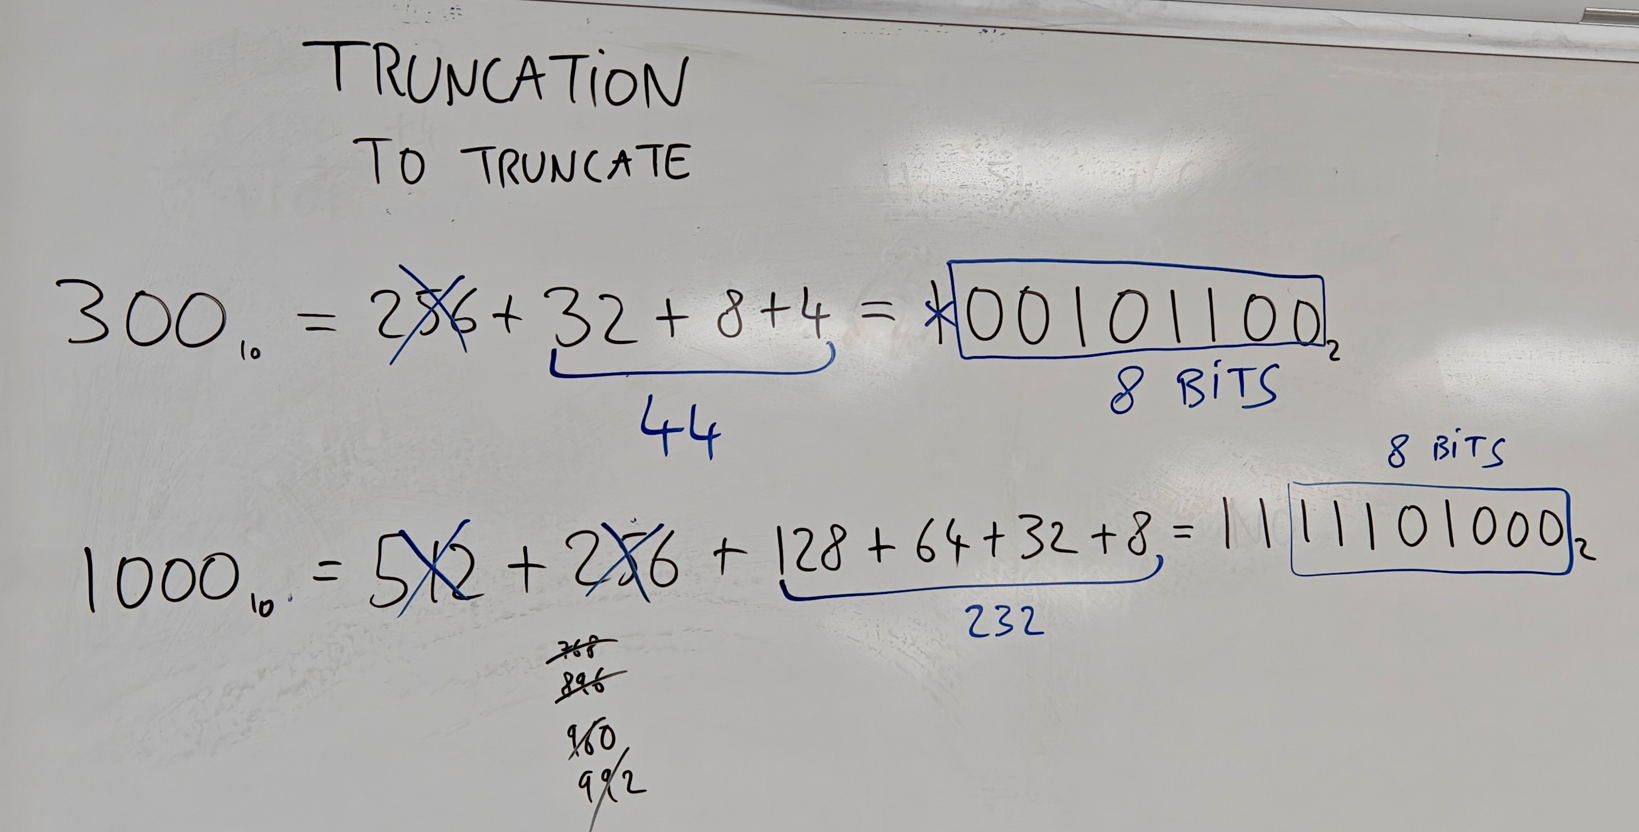 TRUNCATION
TO TRUNCATE
300₁₀ = 256 + 32 + 8 + 4 = 100101100₂
8 BITS
44
8 BITS
1000₁₀ = 512 + 256 + 128 + 64 + 32 + 8 = 1111101000₂
232
768
896
960
992